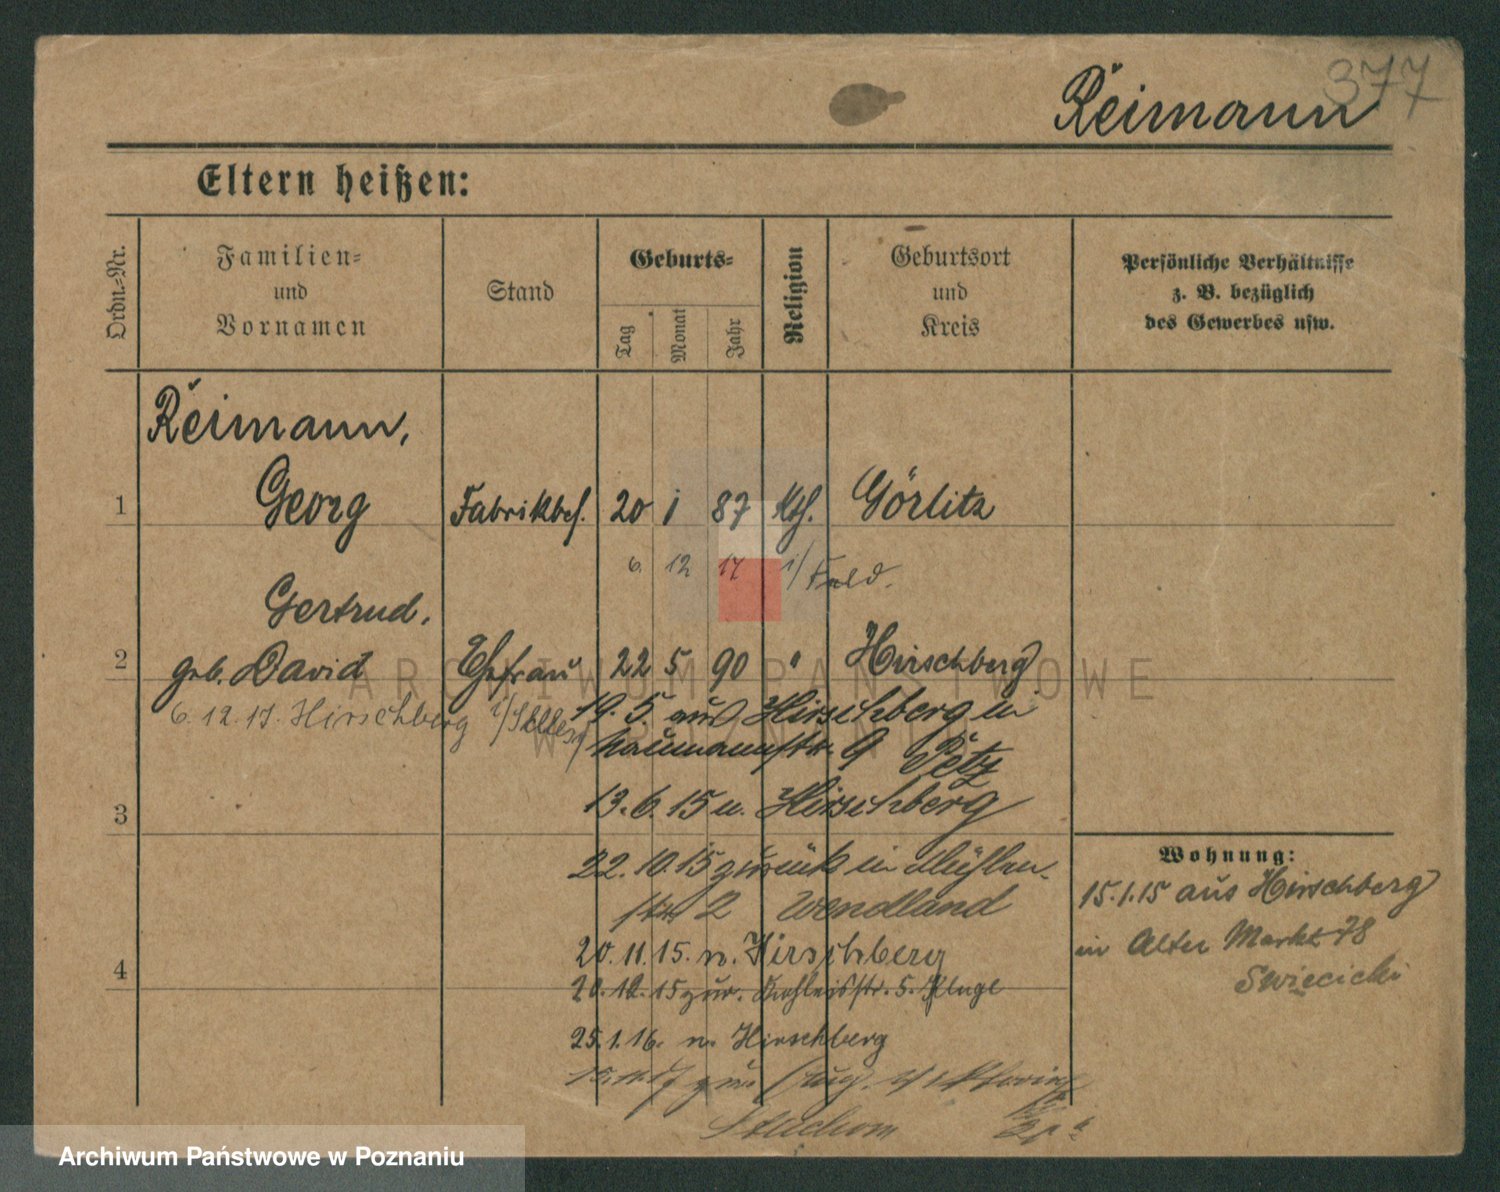 377
Reimann
Eltern heißen:
Ordn.-Nr.
Familien-
und
Vornamen
Stand
Geburts-
Tag
Monat
Jahr
Religion
Geburtsort
und
Kreis
Persönliche Verhältnisse
z. B. bezüglich
des Gewerbes usw.
Reimann,
1 Georg Fabrikbes. 20 1 87 Kth. Görlitz
6. 12 17 i/ Feld.
Gertrud,
2 geb. David Ehefrau 22 5 90 " Hirschberg
6.12.17. Hirschberg i/Schles.
19. 5. aus Hirschberg in
Naumannstr. 9
3 13.6.15 n. Hirschberg
22.10.15 zurück in Mühlen-
str 2 Wendland
20.11.15. n. Hirschberg
4
20.12.15 zur. 5. Kluge
25.1.16. n. Hirschberg
zur.
Wohnung:
15.1.15 aus Hirschberg
in Alter Markt 78
Swiecicki
ARCHIWUM PAŃSTWOWE
W POZNANIU
Archiwum Państwowe w Poznaniu